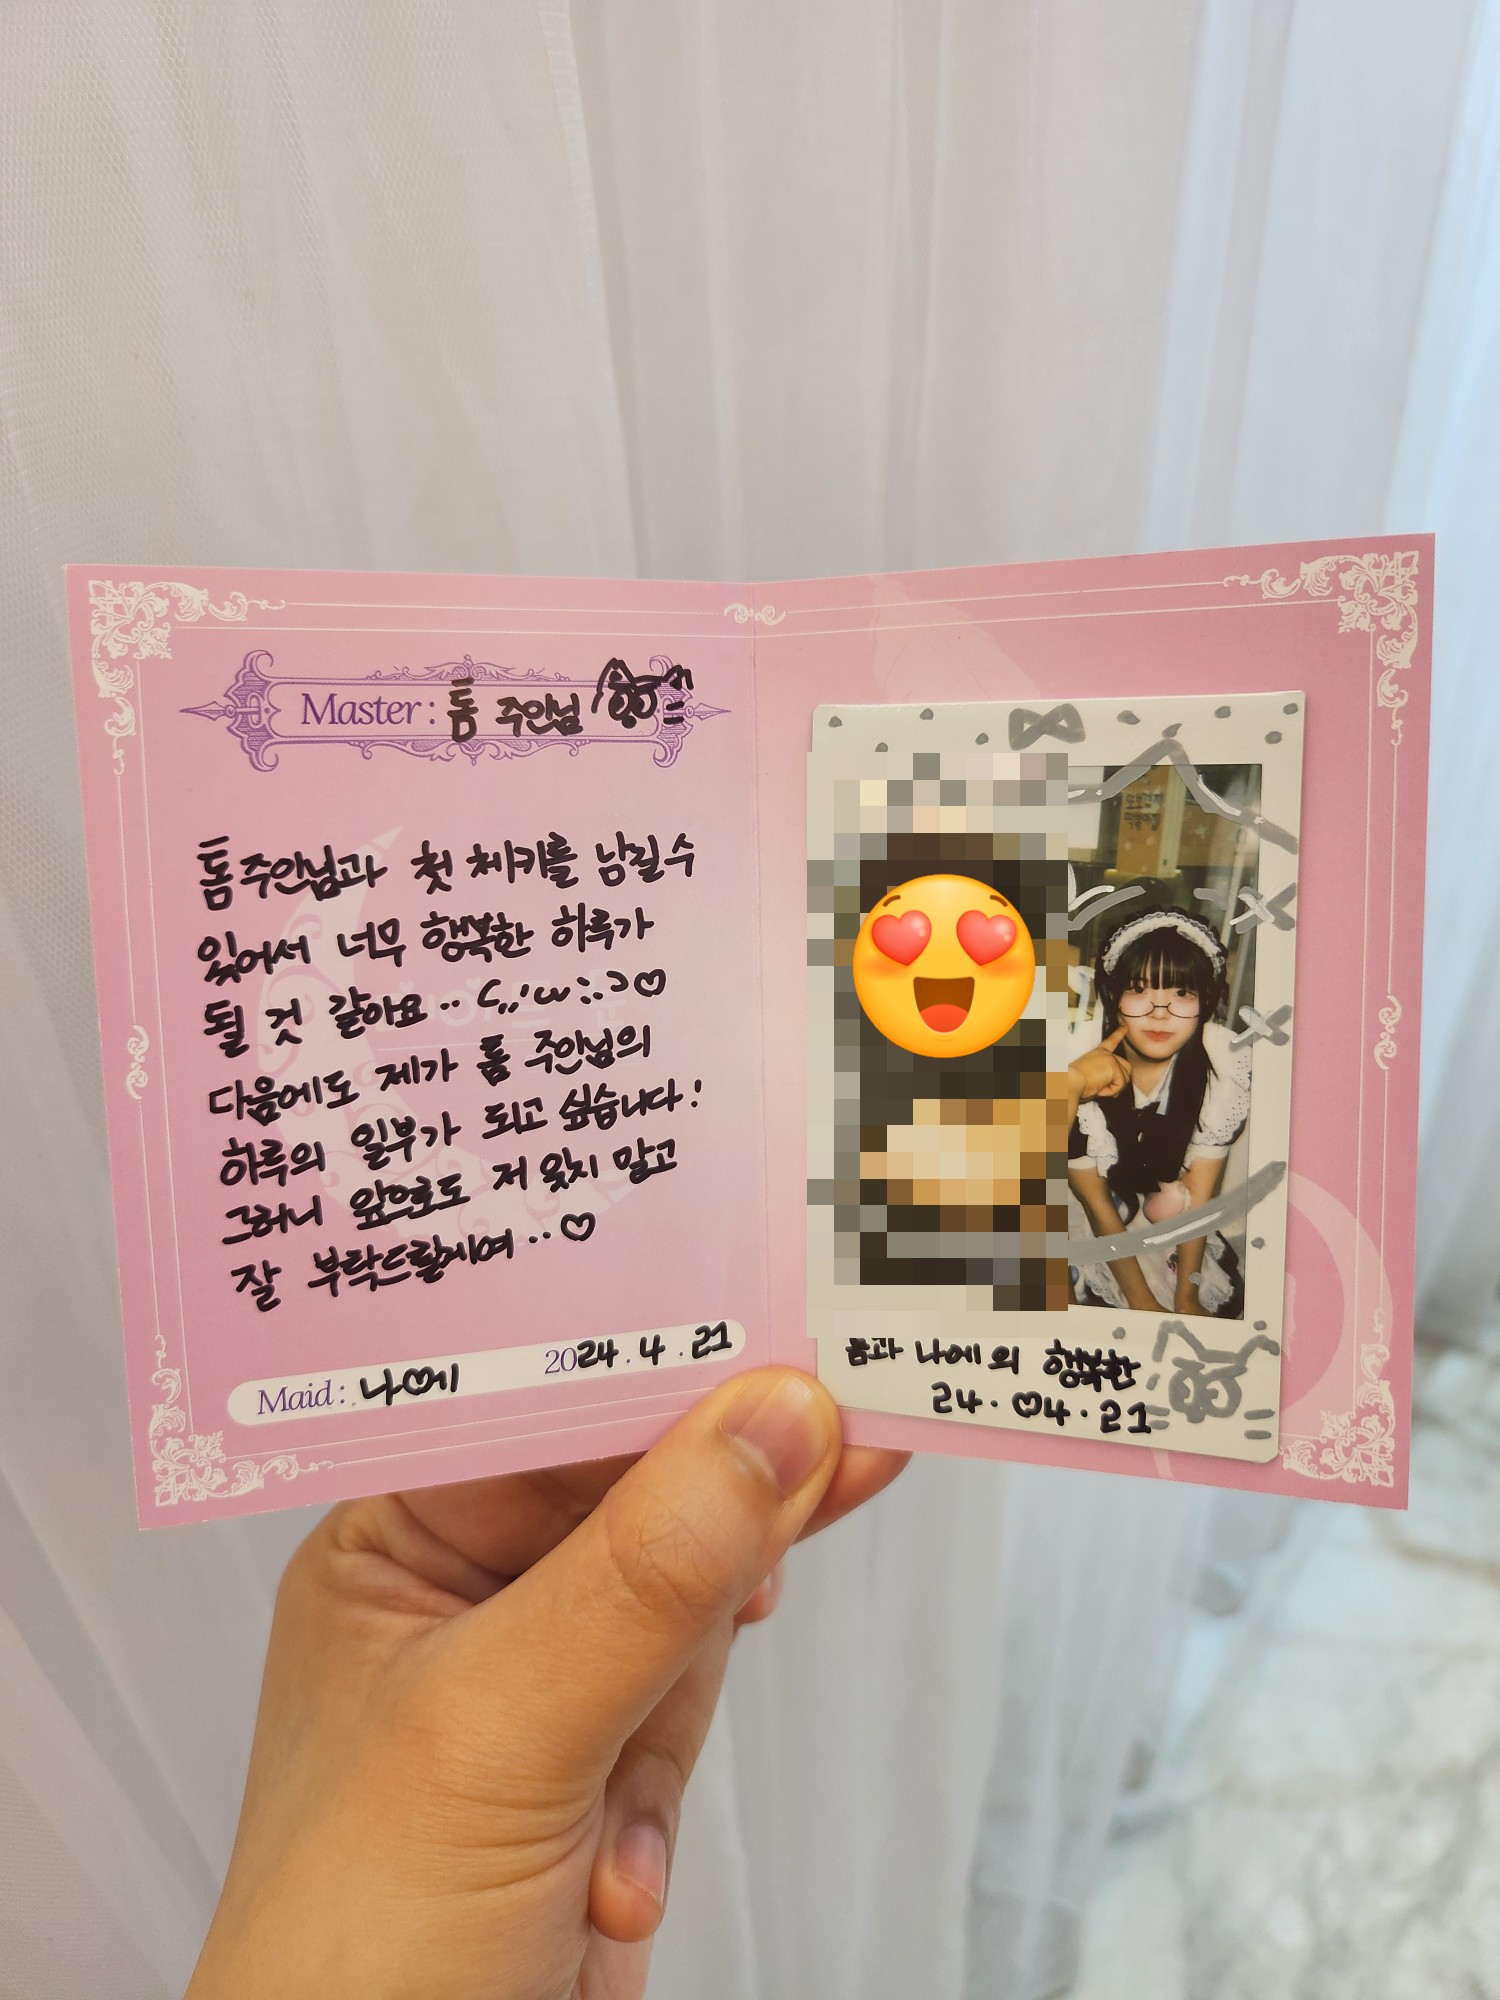 Master: 톰 주인님
톰 주인님과 첫 체키를 남길 수
있어서 너무 행복한 하루가
될 것 같아요..
다음에도 제가 톰 주인님의
하루의 일부가 되고 싶습니다!
그러니 앞으로도 저 잊지 말고
잘 부탁드릴게여..♡
Maid: 나♡에 2024.4.21
톰과 나에의 행복한
24.♡4.21